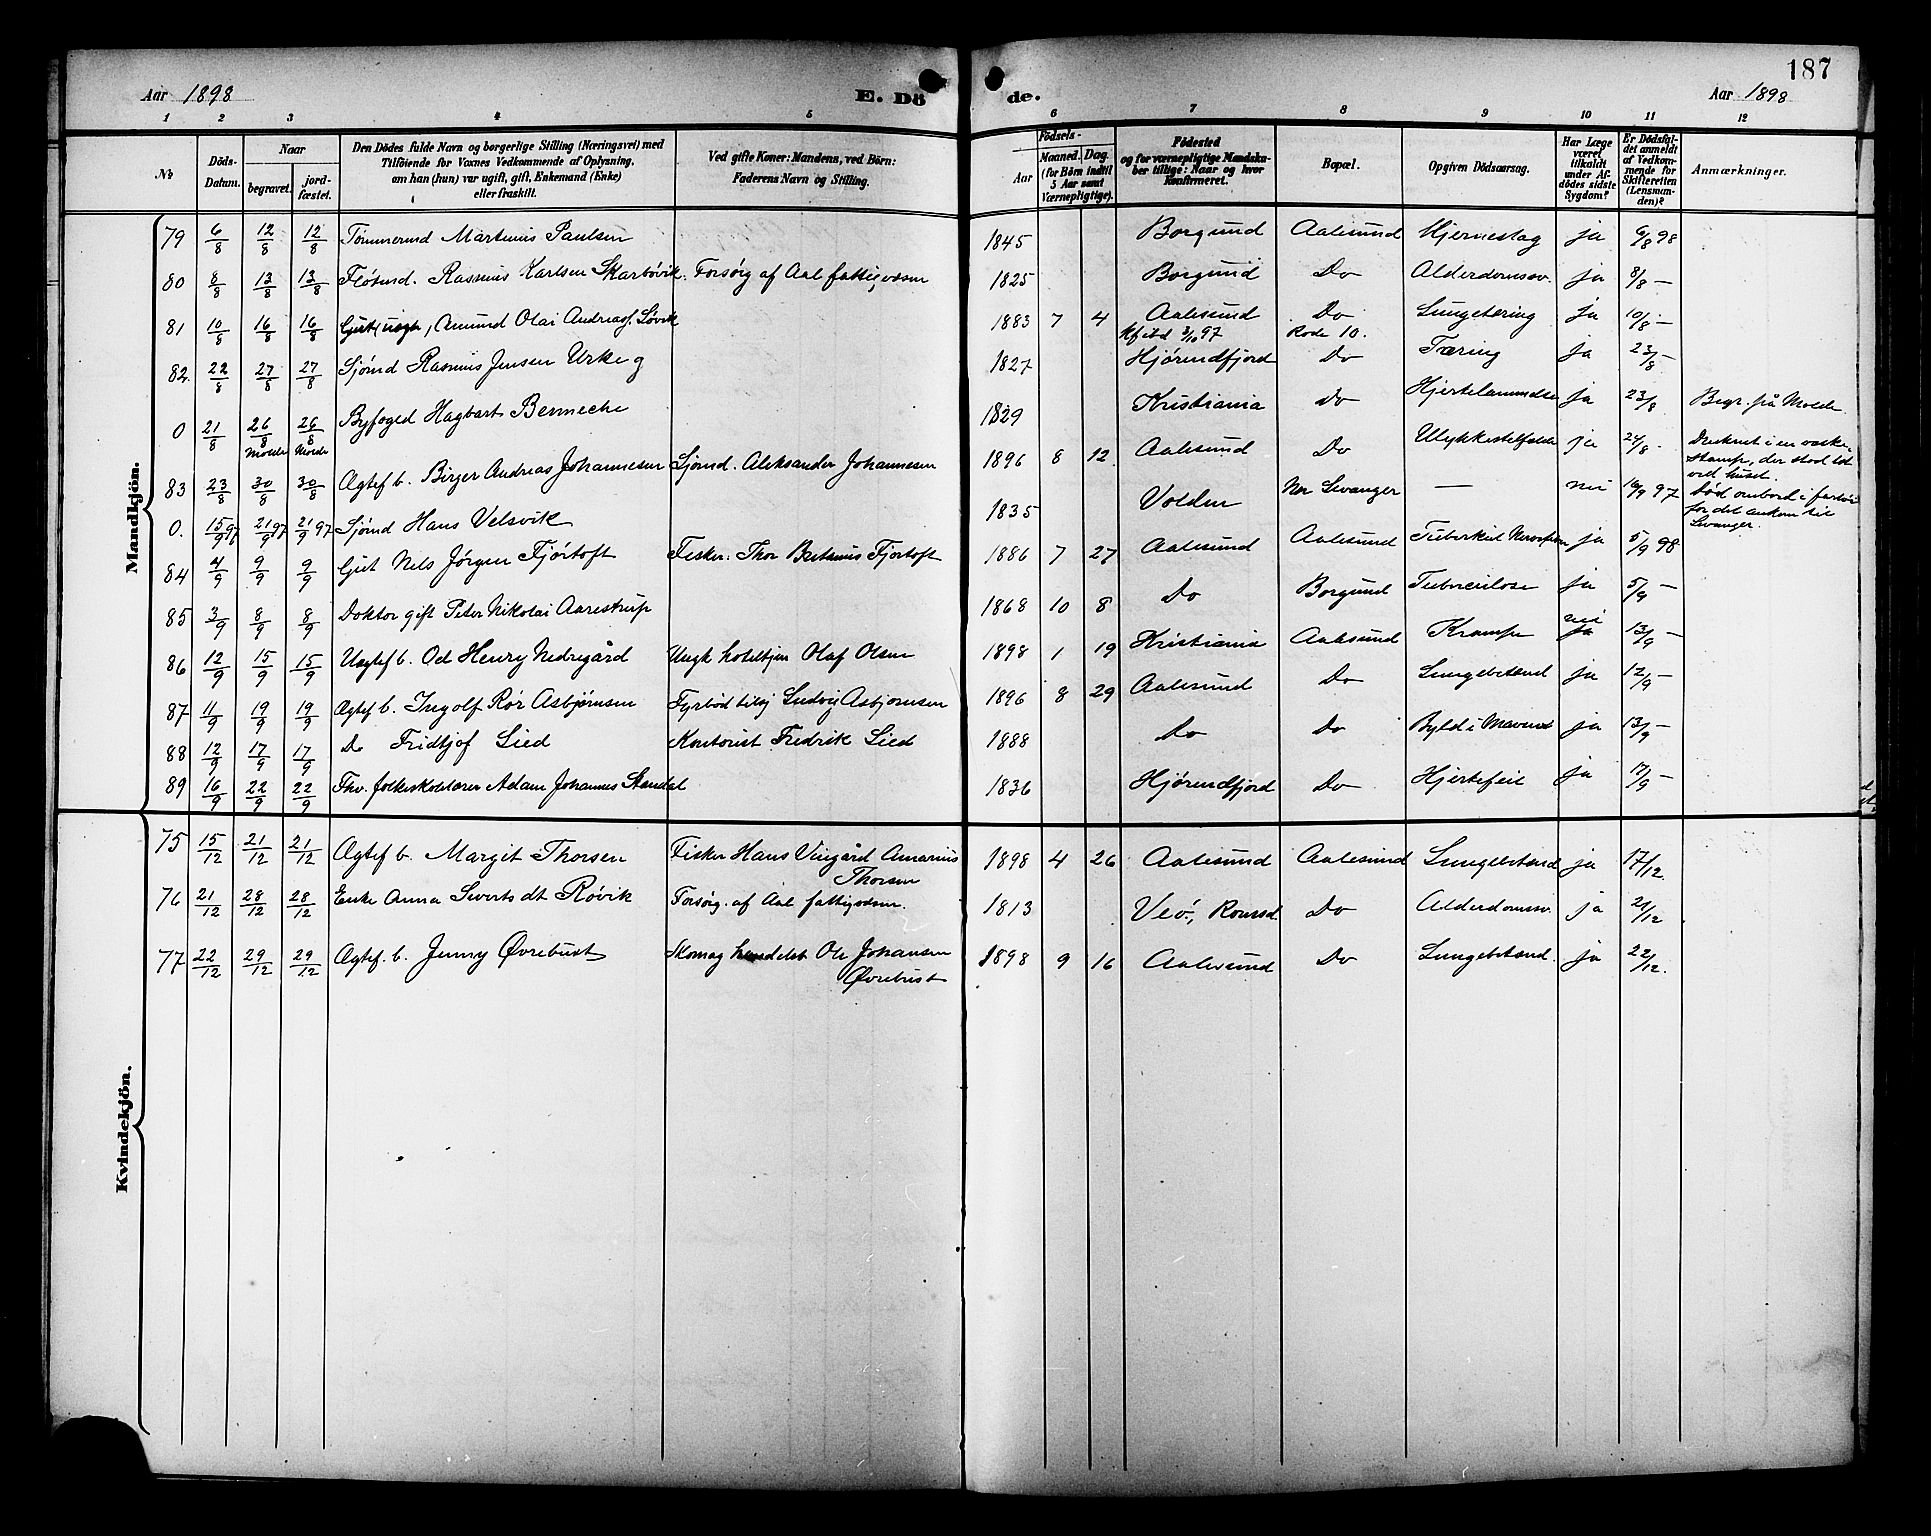 187
Aar 1898 E. Dö de. Aar 1898
1 2 3 4 5 6 7 8 9 10 11 12
No
Döds-Datum.
Naar
begravet.
jord-fæstet.
Den Dödes fulde Navn og borgerlige Stilling (Næringsvei) med
Tilföiende for Voxnes Vedkommende af Oplysning,
om han (hun) var ugift, gift, Enkemand (Enke)
eller fraskilt.
Ved gifte Koner: Mandens, ved Börn:
Faderens Navn og Stilling.
Födsels-
Aar
Maaned. Dag.
(for Börn indtil
5 Aar samt
Værnepligtige).
Födested
og for værnepligtige Mandska-
ber tillige: Naar og hvor
Konfirmeret.
Bopæl.
Opgiven Dödsaarsag.
Har Læge
været
tilkaldt
under Af-
dödes sidste
Sygdom?
Er Dödsfal-
det anmeldt
af Vedkom-
mende for
Skifteretten
(Lensman-
den)?
Anmærkninger.
Mandkjön.
79 6/8 12/8 12/8 Tömmermd Martinus Paulsen 1845 Borgund Aalesund Hjerneslag ja 6/8 98
80 8/8 13/8 13/8 Flötmd. Rasmus Karlsen Skarbövik. Forsörg af Aal fattigvæsen 1825 Borgund Do Alderdomssv. ja 8/8 —
81 10/8 16/8 16/8 Gut, Amund Olai Andreass. Lövik 1883 7 4 Aalesund Do Lungetæring ja 10/8 —
Kf ibd 3/10 97 Rode 10.
82. 22/8 27/8 27/8 Sjömd Rasmus Jensen Urke g 1827 Hjörendfjord Do Tæring ja 23/8 —
0 21/8 26/8 Molde 26/8 Molde Byfoged Hagbart Berneche 1829 Kristiania Do Hjertelammelse ja 23/8 Begr. på Molde
83 23/8 30/8 30/8 Ægtef b. Birger Andreas Johannesen Sjömd. Aleksander Johannesen 1896 8 12 Aalesund Do Ulykkestilfælde ja 24/8 - Druknet i en vaske-
stamp, der stod tæt
ved huset.
0. 15/9 97 21/9 97 21/9 97 Sjömd Hans Velsvik 1835 Volden Nær Levanger — nei 16/9 97 Död ombord i fartöi
för det ankom til
Levanger.
84 4/9 9/9 9/9 Gut Nels Jörgen Fjörtoft Fisker. Thor Fjörtoft 1886 7 27 Aalesund Aalesund Tuberkul ja 5/9 98
85 3/9 8/9 8/9 Doktor gift Peter Nikolai Aarestrup 1868 10 8 Do Borgund Tuberculose ja 5/9 —
86 12/9 15/9 15/9 Uægtef b. Od Henry Nedregård Ungk Olaf Olsen 1898 1 19 Kristiania Aalesund Krampe nei ja 13/9 —
87 11/9 19/9 19/9 Ægtef b. Ingolf Rör Asbjörnsen Fyrböd Ludvig Asbjornsen 1896 8 29 Aalesund Do Lungebetænd ja 12/9 —
88 12/9 17/9 17/9 Do Fridtjof Lied Kontorist Fredrik Lied 1888 Do Do Byld i Maven ja 13/9 —
89 16/9 22/9 22/9 Fhv. folkeskolelærer Adam Johannes Standal 1836 Hjörendfjord Do Hjertefeil ja 17/9 —
Kvindekjön.
75 15/12 21/12 21/12 Ægtef b. Margit Thorsen Fisker Hans Vingård Amarius 1898 4 26 Aalesund Aalesund Lungebetænd ja 17/12.
Thorsen
76 21/12 28/12 28/12 Enke Anna Sivertsdt Rövik Forsörg. af Aal fattigvæsen. 1813 Veö, Romsd. Do Alderdomssv. ja 21/12
77 22/12 29/12 29/12 Ægtef. b. Jenny Övrebust Skomag Ole Johansen 1898 9 16 Aalesund Do Lungebetænd. ja 22/12.
Övrebust